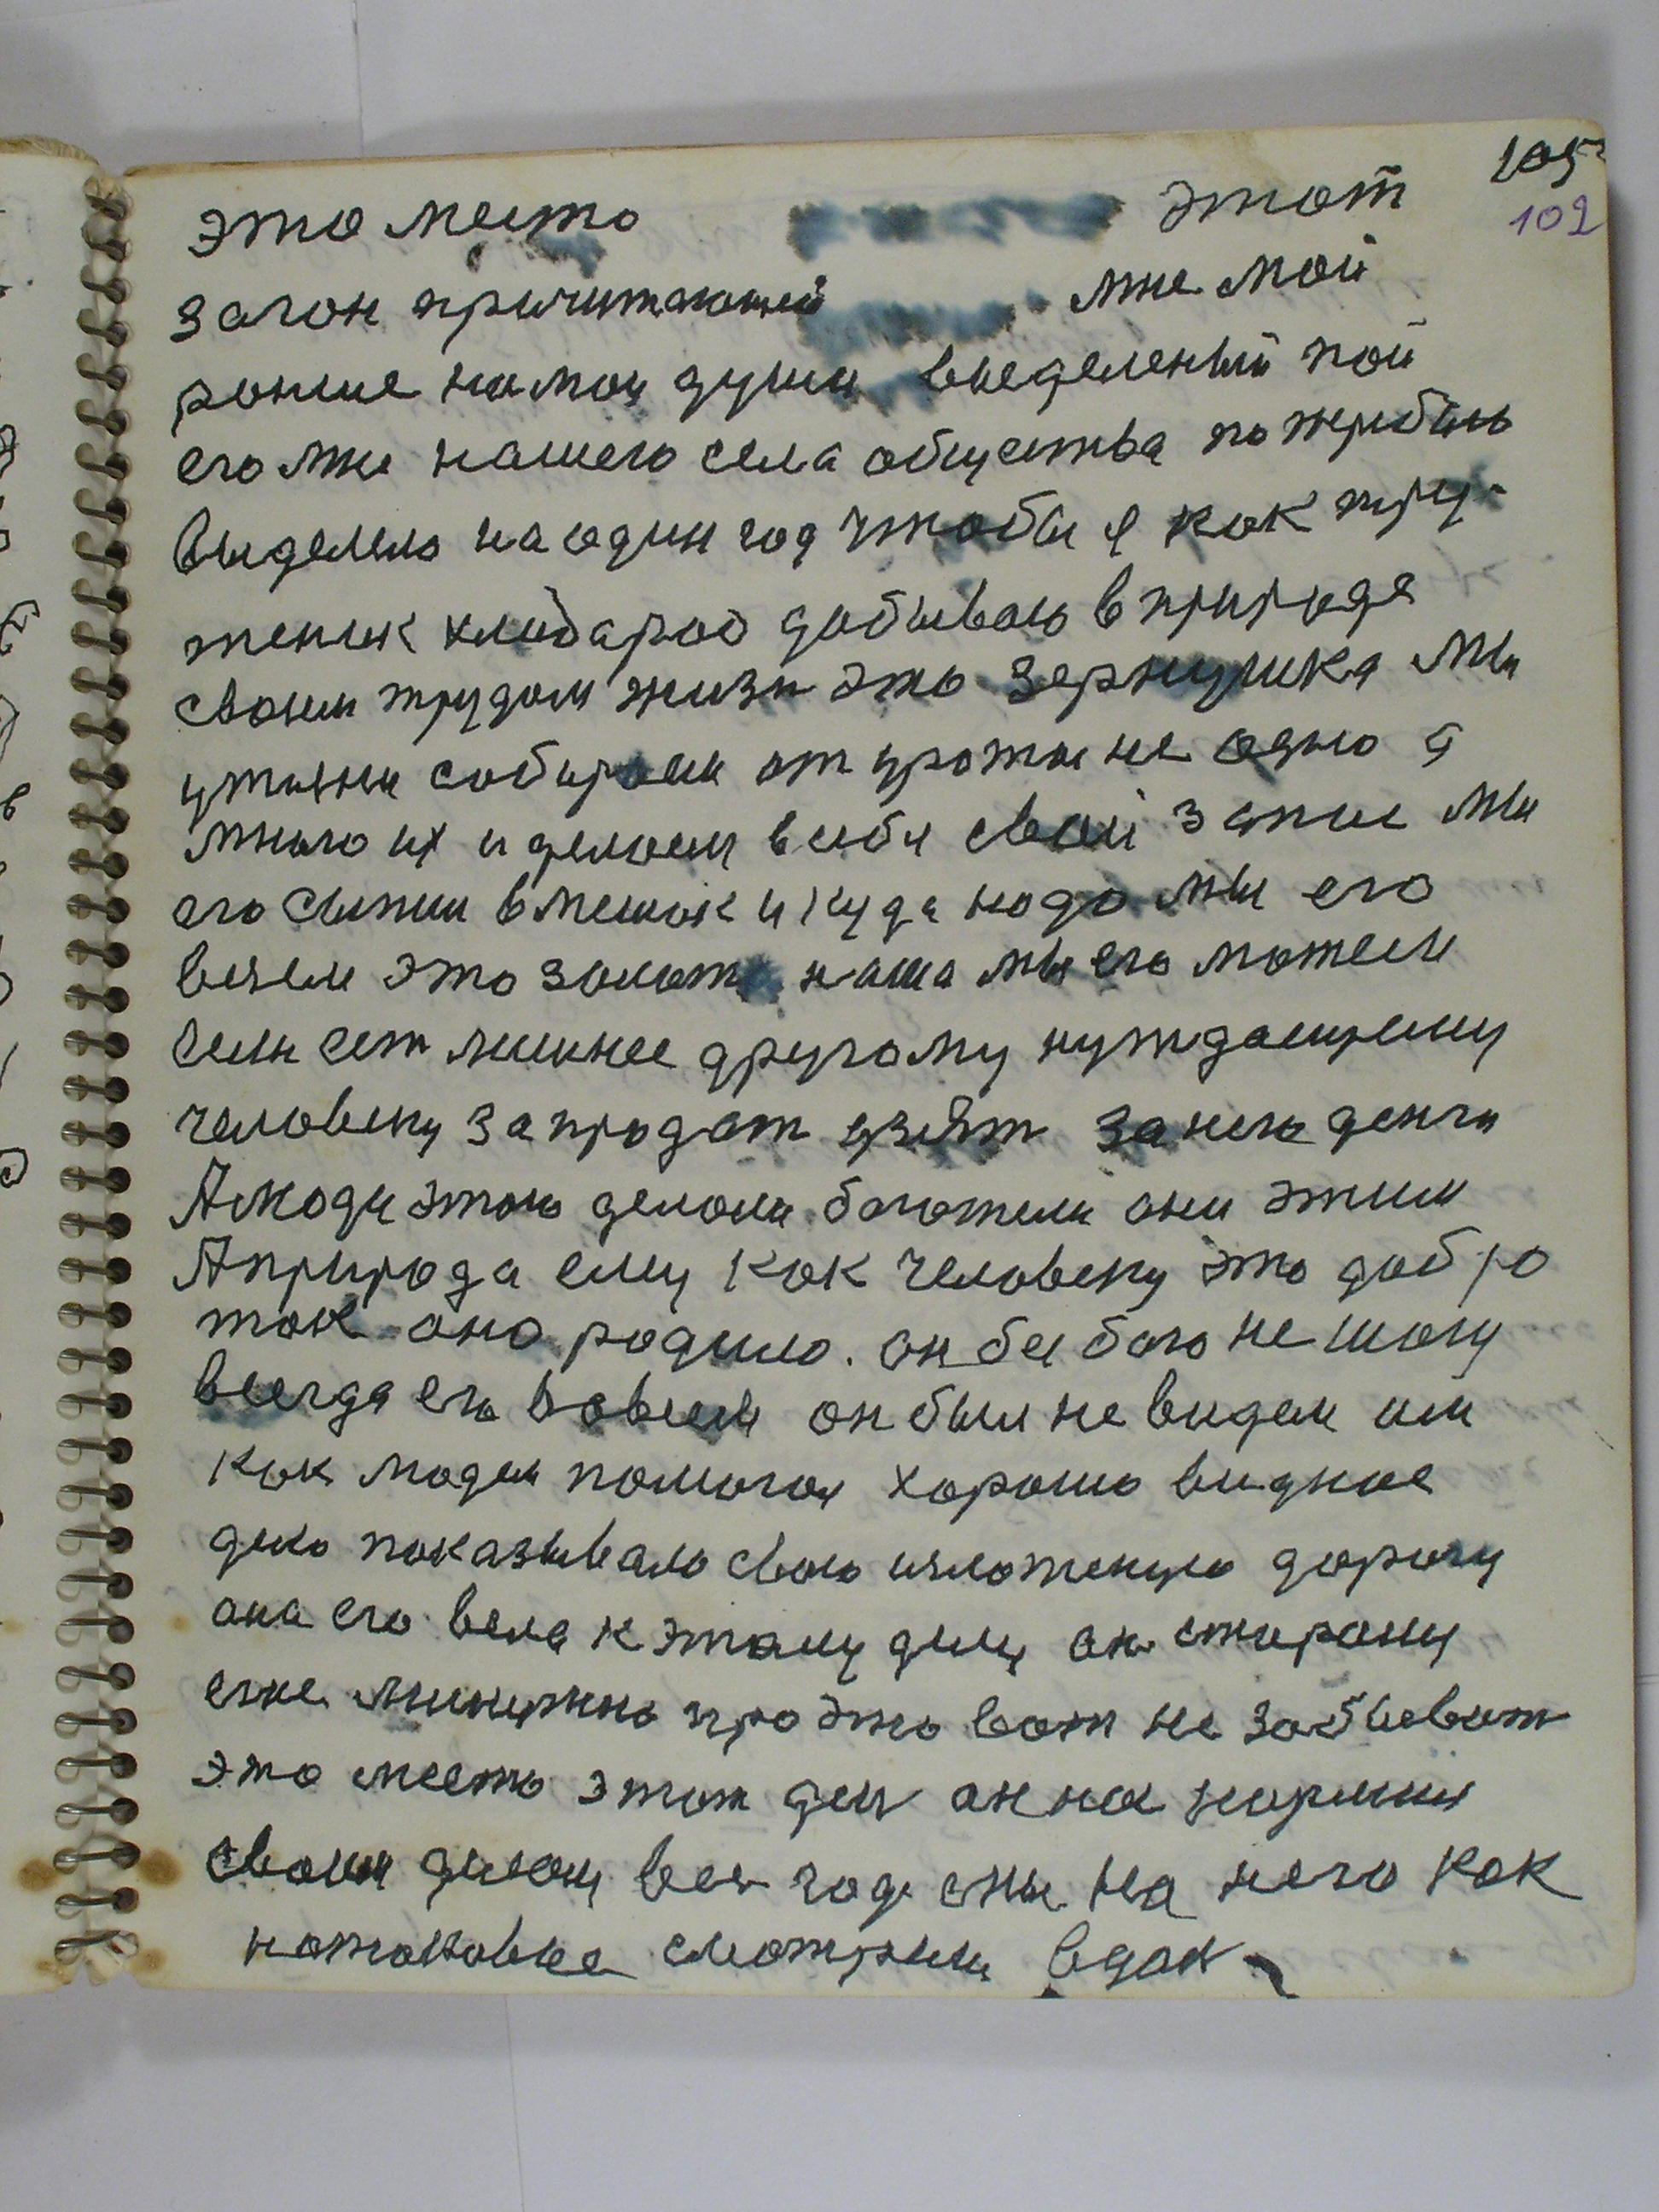 105
102
это место этот
загон причитающей мне мой
роние на мои души выеделеный пой
его мне нашего села общества по жребию
выделело на один год чтобы я как тру-
женик хлибароб добываю в природе
своим трудом жизн это зернушка мы
утыняи собираем от урожы не одно а
много их и делаем в себя свой запас мы
его сыпим в мешок и куда надо мы его
везем это золото наша мы его можем
если ест лишнее другому нуждаещему
человеку за продат узят за него денги
А люди этого делали богатели они этим
А природа ему как человеку это добро
так оно родило. он бы бого не шогу
всегда его вовсем он был не видем им
как людем помогая хорошо видное
дело показывало свою изложеную дорогу
она его вела к этому делу он старому
еще минутно про это вот не забывает
это место этот ден он на кормит
своим делом вес год мы на него как
на таковое смотрим вдал